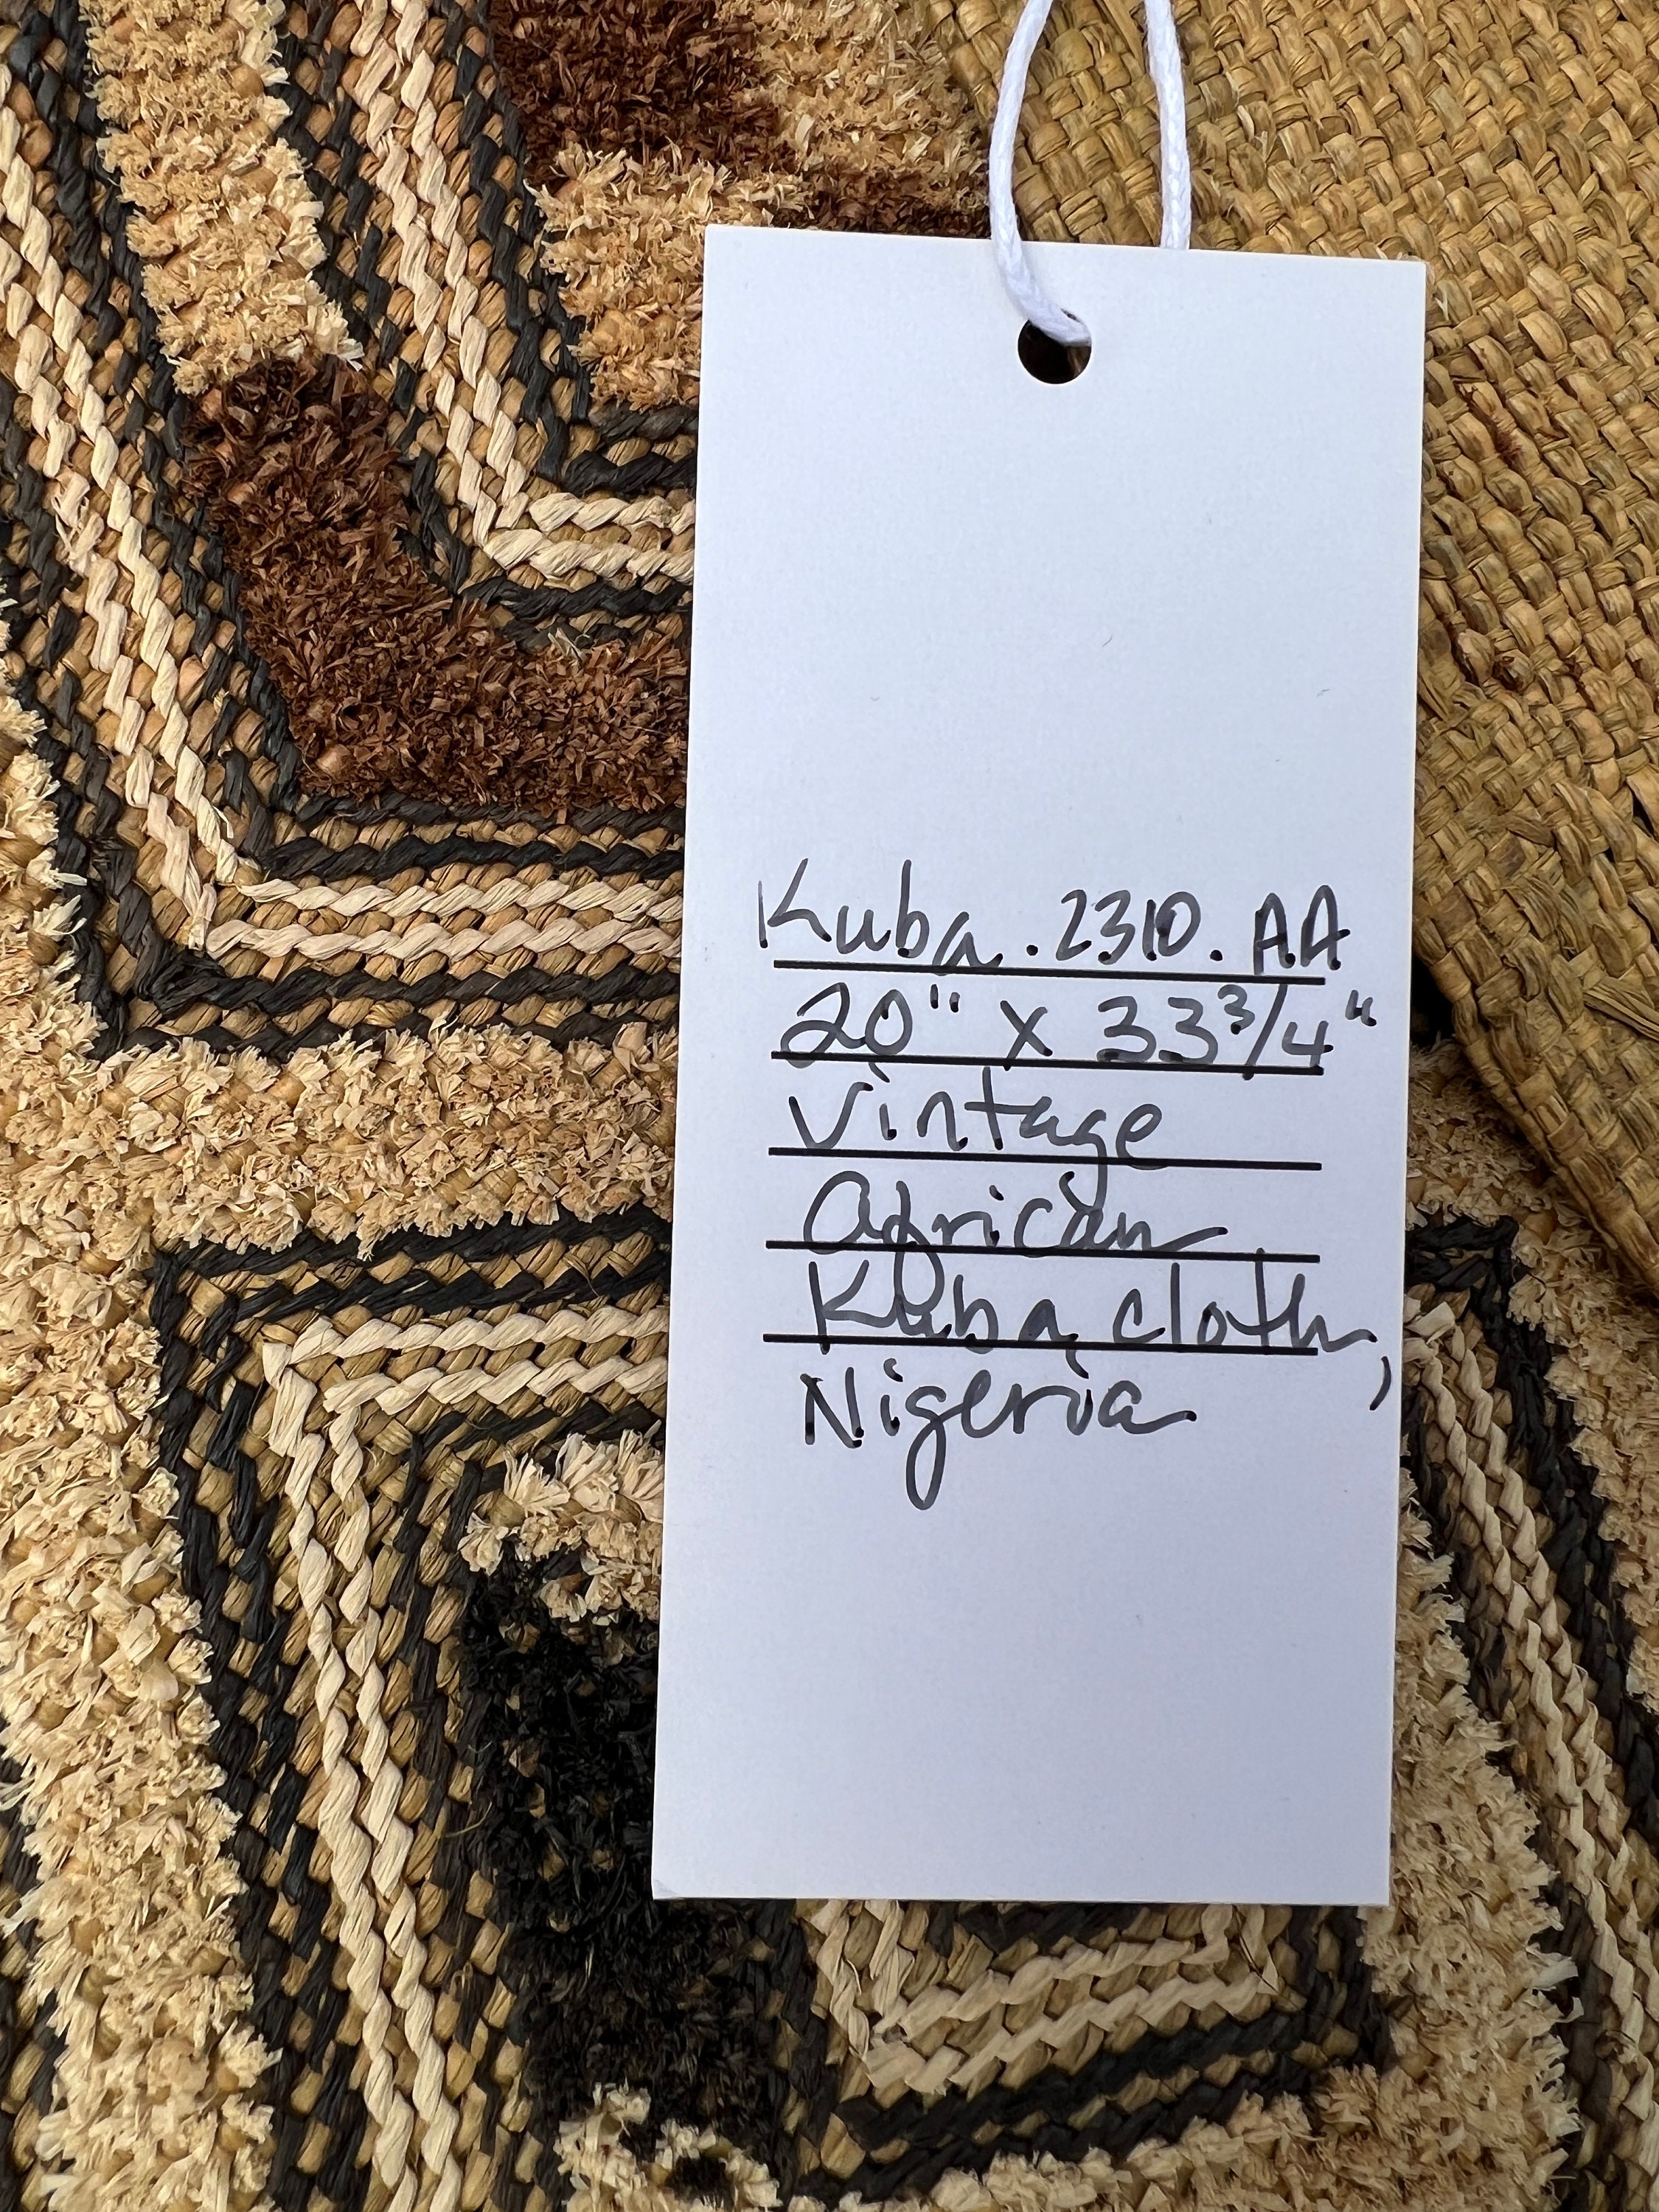 Kuba.2310.AA
20" x 33 3/4"
Vintage
African
Kuba cloth,
Nigeria